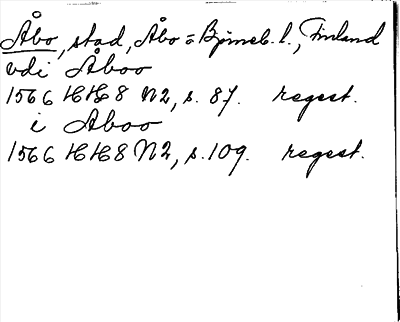 Åbo, stad, Åbo = Björneb. l., Finland
vdi Åboo
1566 HH8 N2, s. 87. regest.
i Aboo
1566 HH8 N2, s. 109. regest.